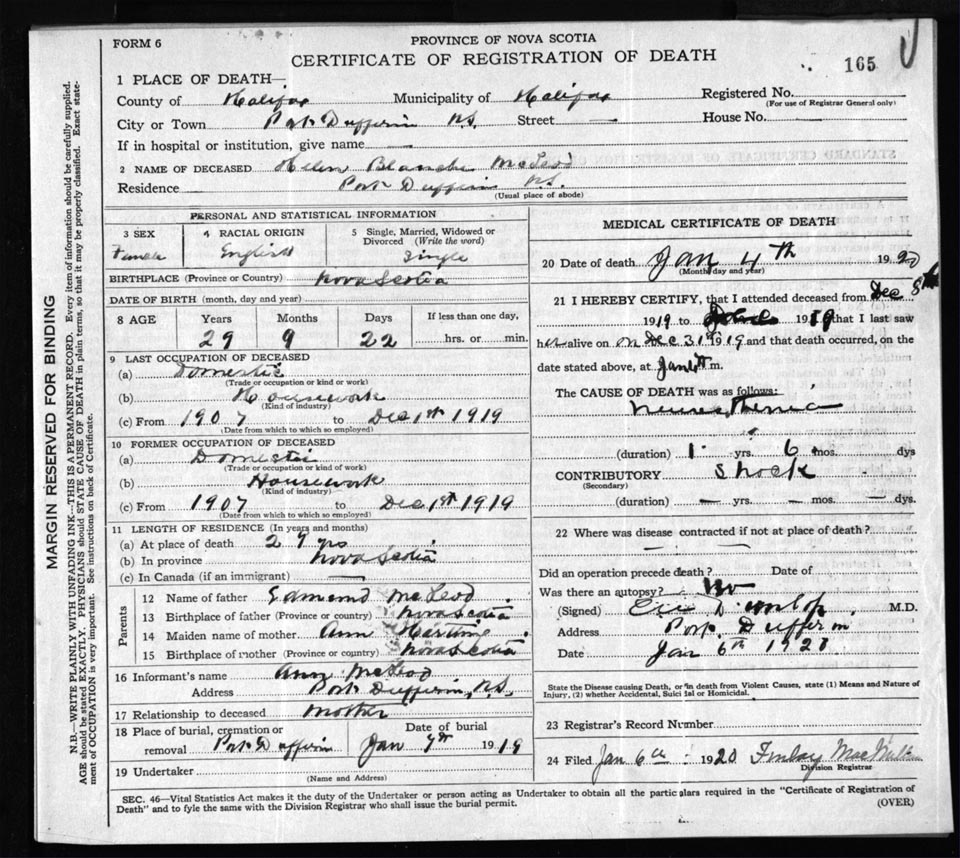 FORM 6
PROVINCE OF NOVA SCOTIA
CERTIFICATE OF REGISTRATION OF DEATH
165
1 PLACE OF DEATH—
County of Halifax Municipality of Halifax Registered No.
(For use of Registrar General only)
City or Town Port Dufferin N.S. Street — House No. —
If in hospital or institution, give name —
2 NAME OF DECEASED Helen Blanche McLeod
Residence Port Dufferin N.S.
(Usual place of abode)
PERSONAL AND STATISTICAL INFORMATION
3 SEX 4 RACIAL ORIGIN 5 Single, Married, Widowed or Divorced (Write the word)
Female English Single
BIRTHPLACE (Province or Country) Nova Scotia
DATE OF BIRTH (month, day and year)
8 AGE Years Months Days If less than one day,
29 9 22 hrs. or min.
9 LAST OCCUPATION OF DECEASED
(a) Domestic
(Trade or occupation or kind of work)
(b) Housework
(Kind of industry)
(c) From 1907 to Dec 1st 1919
(Date from which to which so employed)
10 FORMER OCCUPATION OF DECEASED
(a) Domestic
(Trade or occupation or kind of work)
(b) Housework
(Kind of industry)
(c) From 1907 to Dec 1st 1919
(Date from which to which so employed)
11 LENGTH OF RESIDENCE (In years and months)
(a) At place of death 29 yrs
(b) In province Nova Scotia
(c) In Canada (if an immigrant) —
Parents
12 Name of father Edmund McLeod
13 Birthplace of father (Province or country) Nova Scotia
14 Maiden name of mother Ann
15 Birthplace of mother (Province or country) Nova Scotia
16 Informant's name Ann McLeod
Address Port Dufferin, N.S.
17 Relationship to deceased Mother
18 Place of burial, cremation or Date of burial
removal Port Dufferin Jan 1919
19 Undertaker
(Name and Address)
MEDICAL CERTIFICATE OF DEATH
20 Date of death Jan 4th 1920
(Month, day and year)
21 I HEREBY CERTIFY, that I attended deceased from Dec 8th
1919 to 1919 that I last saw
her alive on on Dec 31st 1919 and that death occurred, on the
date stated above, at m.
The CAUSE OF DEATH was as follows:
Neurasthenia
(duration) 1 yrs. 6 mos. dys
CONTRIBUTORY Shock
(Secondary)
(duration) — yrs. — mos. — dys.
22 Where was disease contracted if not at place of death?
Did an operation precede death? Date of
Was there an autopsy? No
(Signed) M.D.
Address Port Dufferin
Date Jan 6th 1920
State the Disease causing Death, or in death from Violent Causes, state (1) Means and Nature of
Injury, (2) whether Accidental, Suicidal or Homicidal.
23 Registrar's Record Number
24 Filed Jan 6th 1920 Finlay
Division Registrar
SEC. 46—Vital Statistics Act makes it the duty of the Undertaker or person acting as Undertaker to obtain all the particulars required in the "Certificate of Registration of
Death" and to fyle the same with the Division Registrar who shall issue the burial permit.
(OVER)
MARGIN RESERVED FOR BINDING
N.B.—WRITE PLAINLY WITH UNFADING INK—THIS IS A PERMANENT RECORD. Every item of information should be carefully supplied.
AGE should be stated EXACTLY, PHYSICIANS should STATE CAUSE OF DEATH in plain terms, so that it may be properly classified. Exact state-
ment of OCCUPATION is very important. See instructions on back of Certificate.